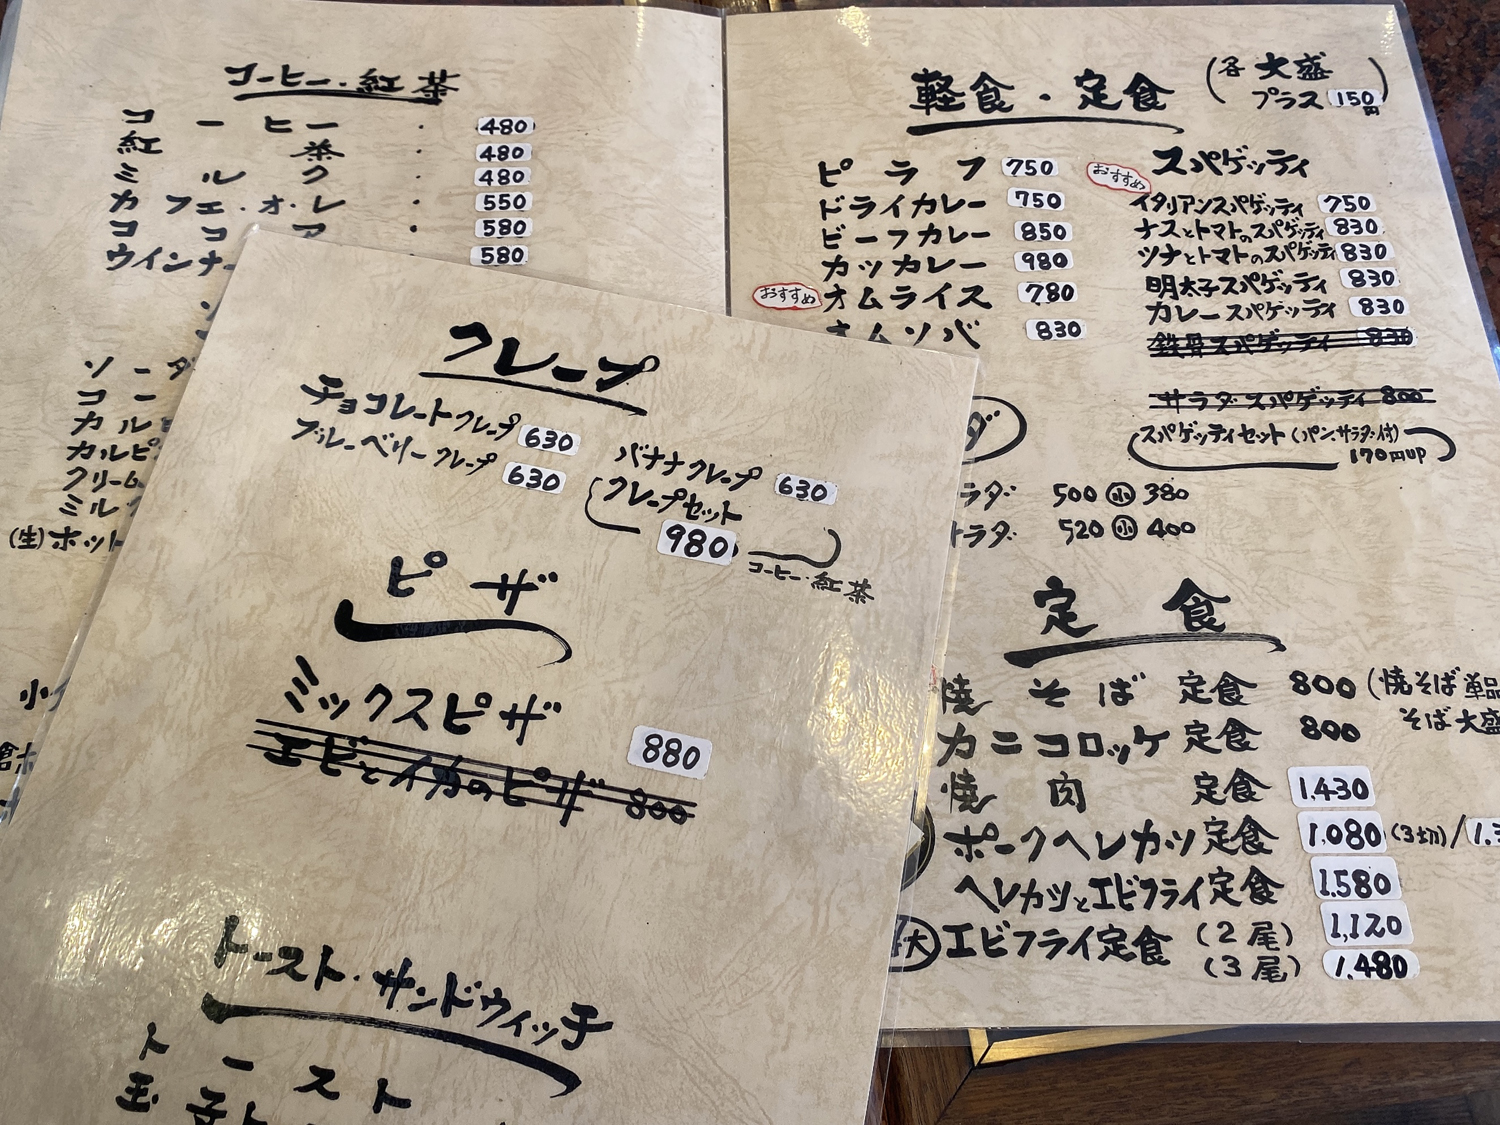 コーヒー・紅茶
コーヒー・480
紅茶・480
ミルク・480
カフェ・オ・レ 550
ココア・580
ウインナー 580
ソーダ
コー
カル
カルピ
クリーム
ミルク
(生)ホット
クレープ
チョコレートクレープ 630
ブルーベリークレープ 630
バナナクレープ 630
クレープセット
980
コーヒー・紅茶
ピザ
ミックスピザ 880
エビとイカのピザ 800
トースト・サンドウィッチ
トースト
玉子ト
軽食・定食
(各大盛
プラス150円)
ピラフ 750
ドライカレー 750
ビーフカレー 850
カツカレー 980
おすすめ オムライス 780
オムソバ 830
おすすめ
スパゲッティ
イタリアンスパゲッティ 750
ナスとトマトのスパゲッティ 830
ツナとトマトのスパゲッティ 830
明太子スパゲッティ 830
カレースパゲッティ 830
鉄骨スパゲッティ 830
サラダスパゲッティ 800
スパゲッティセット(パン、サラダ付)
170円UP
ダ
ラダ 500 小 380
サラダ 520 小 400
定食
焼そば定食 800 (焼そば単品
そば大盛
カニコロッケ定食 800
焼肉定食 1,430
ポークヘレカツ定食 1,080(3切)/1.3
ヘレカツとエビフライ定食 1,580
大 エビフライ定食 (2尾) 1,120
(3尾) 1,480